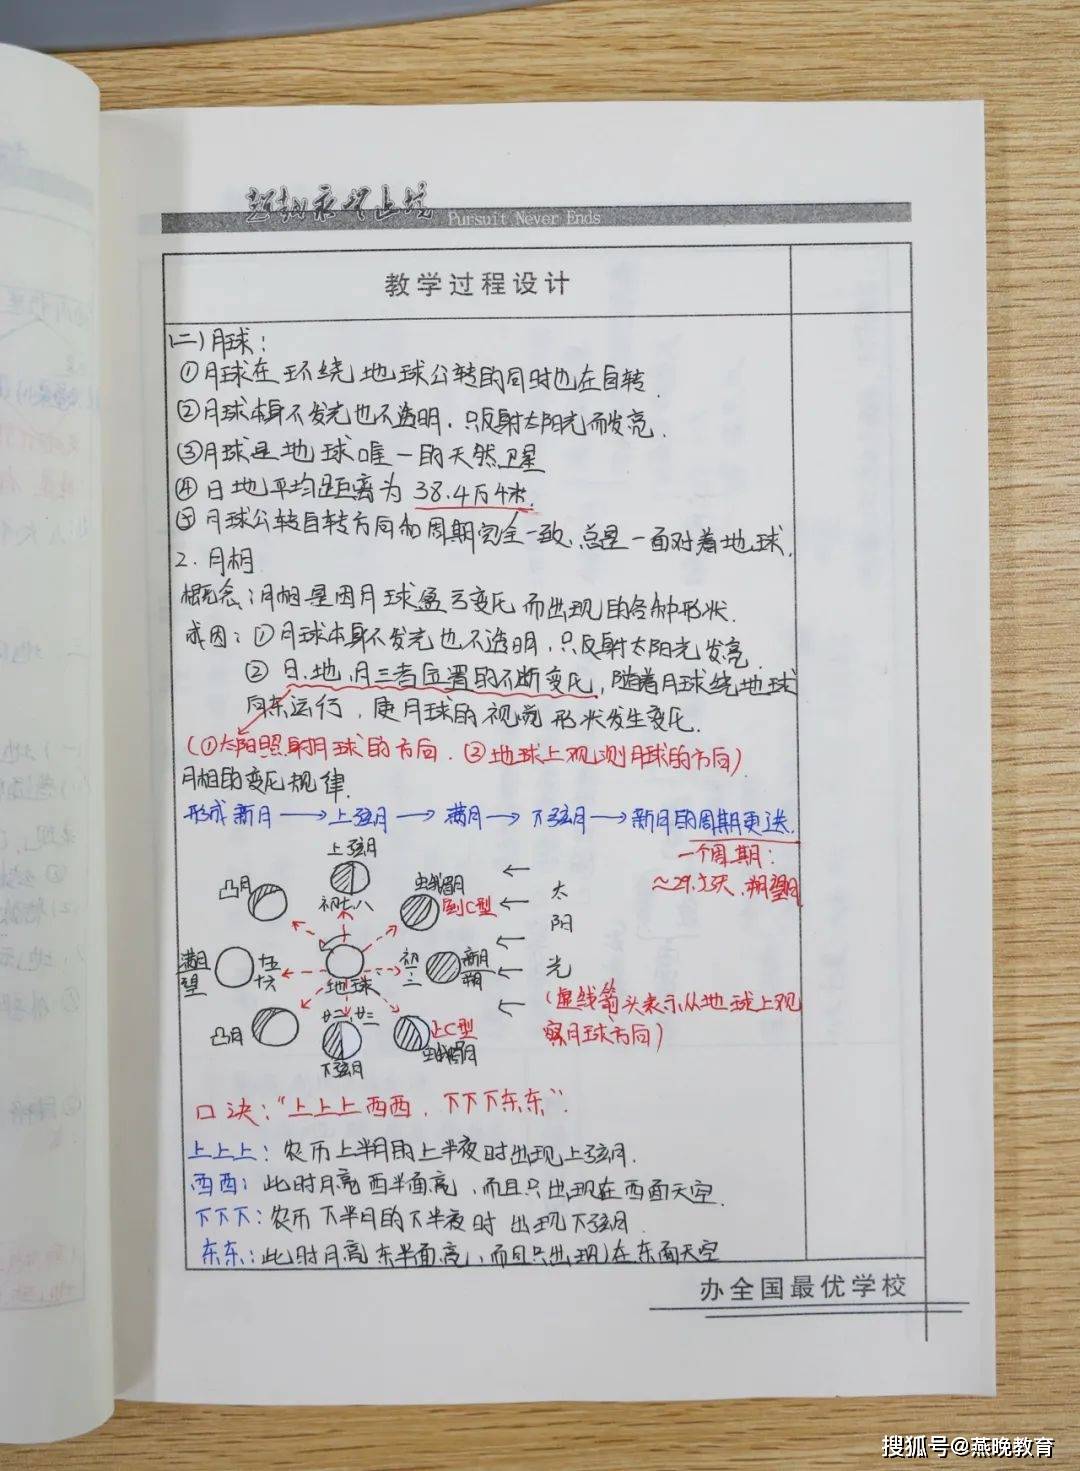 追求永无止境 Pursuit Never Ends
教学过程设计
(二)月球：
①月球在环绕地球公转的同时也在自转.
②月球本身不发光也不透明，只反射太阳光而发亮.
③月球是地球唯一的天然卫星
④日地平均距离为38.4万千米.
⑤月球公转自转方向和周期完全一致、总是一面对着地球.
2.月相
概念：月相是因月球盈亏变化而出现的各种形状.
成因：①月球本身不发光也不透明，只反射太阳光发亮.
②日、地、月三者位置的不断变化，随着月球绕地球
向东运行，使月球的视觉形状发生变化.
(①太阳照射月球的方向.②地球上观测月球的方向)
月相的变化规律.
形成新月→上弦月→满月→下弦月→新月的周期更迭.
一个周期：
≈29.5天.朔望月
上弦月
初七、八
凸月
蛾眉月
反C型
太
阳
光
满月
望
十五
十六
地球
初一、二
新月
朔
(虚线箭头表示从地球上观
察月球方向)
凸月
廿二、廿三
下弦月
正C型
蛾眉月
口诀："上上上西西，下下下东东".
上上上：农历上半月的上半夜时出现上弦月.
西西：此时月亮西半面亮，而且只出现在西面天空.
下下下：农历下半月的下半夜时出现下弦月.
东东：此时月亮东半面亮，而且只出现在东面天空
办全国最优学校
搜狐号@燕晚教育